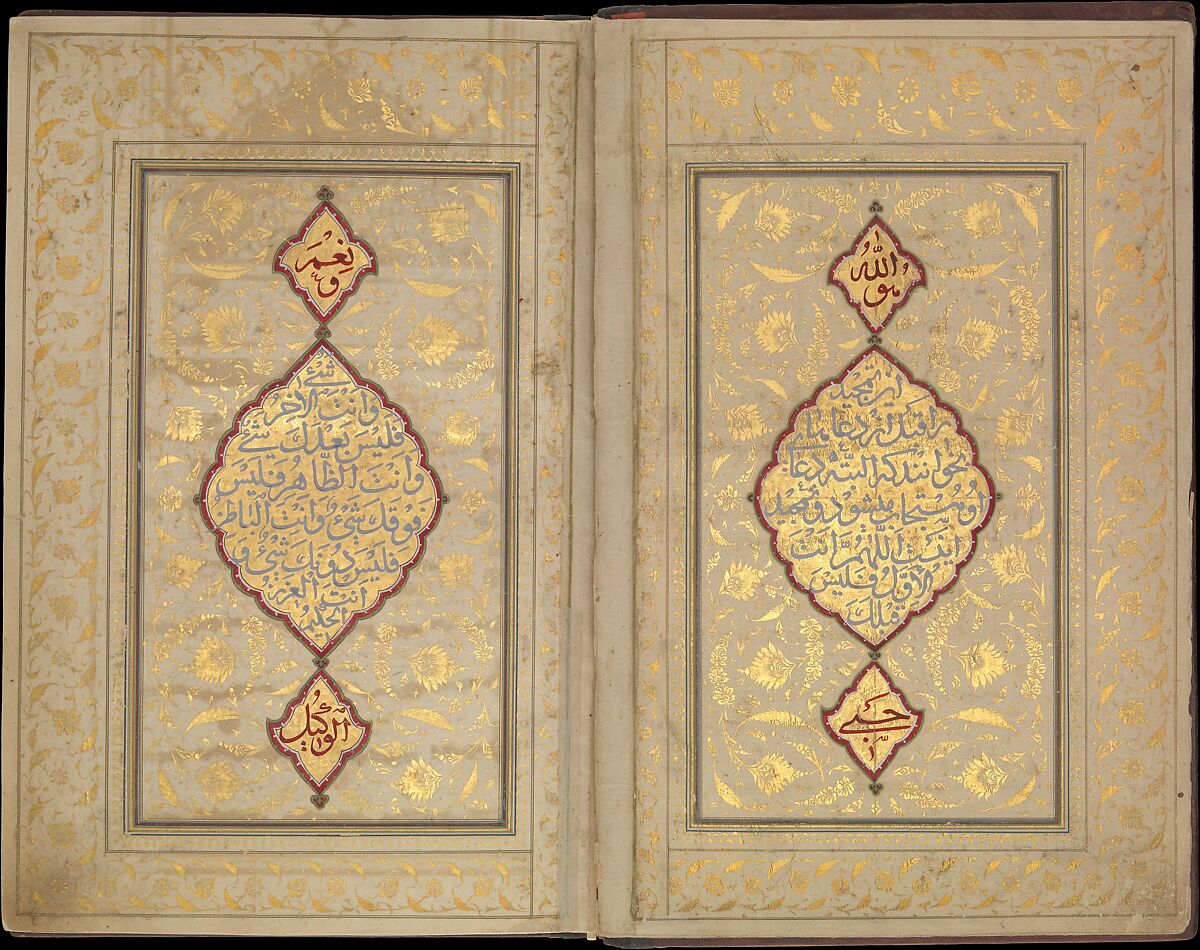 هو الله
این تمجید
را قبل از دعاها
بخوانند که البته دعای
او مستجاب میشود و تمجید
اینست اللّهمّ انت
الاوّل فلیس
قبلك
حسبی
و نعم
شیء
وانت الآخر
فلیس بعدك شیء
وانت الظّاهر فلیس
فوقك شیء وانت الباطن
فلیس دونك شیء و
انت العزیز
الحکیم
الوکیل